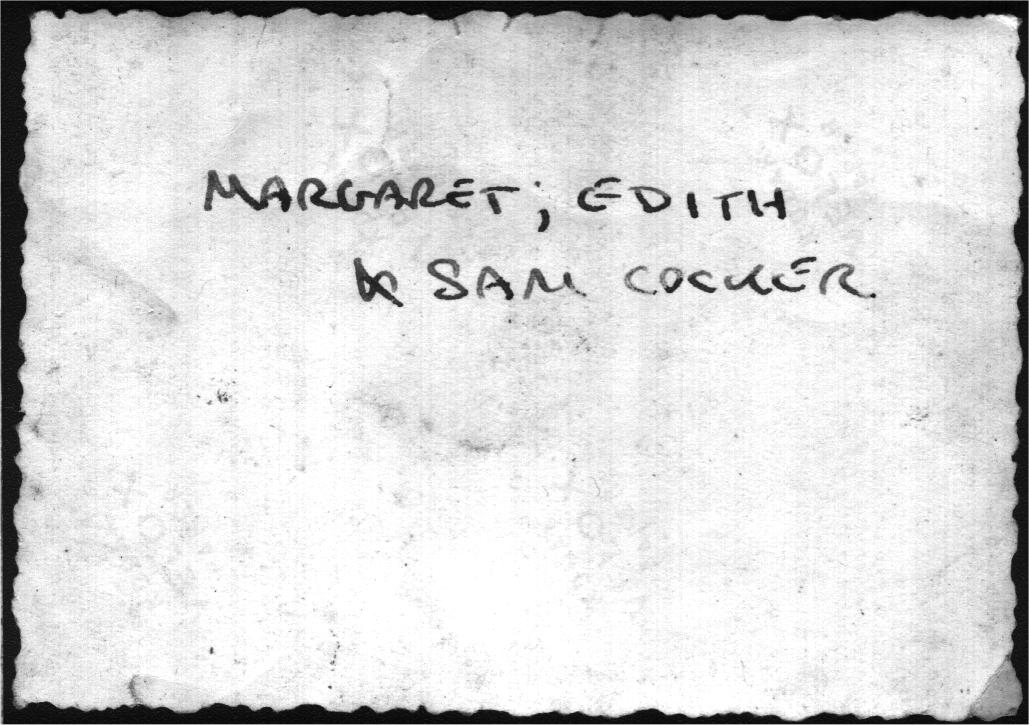 MARGARET; EDITH
& SAM COCKER